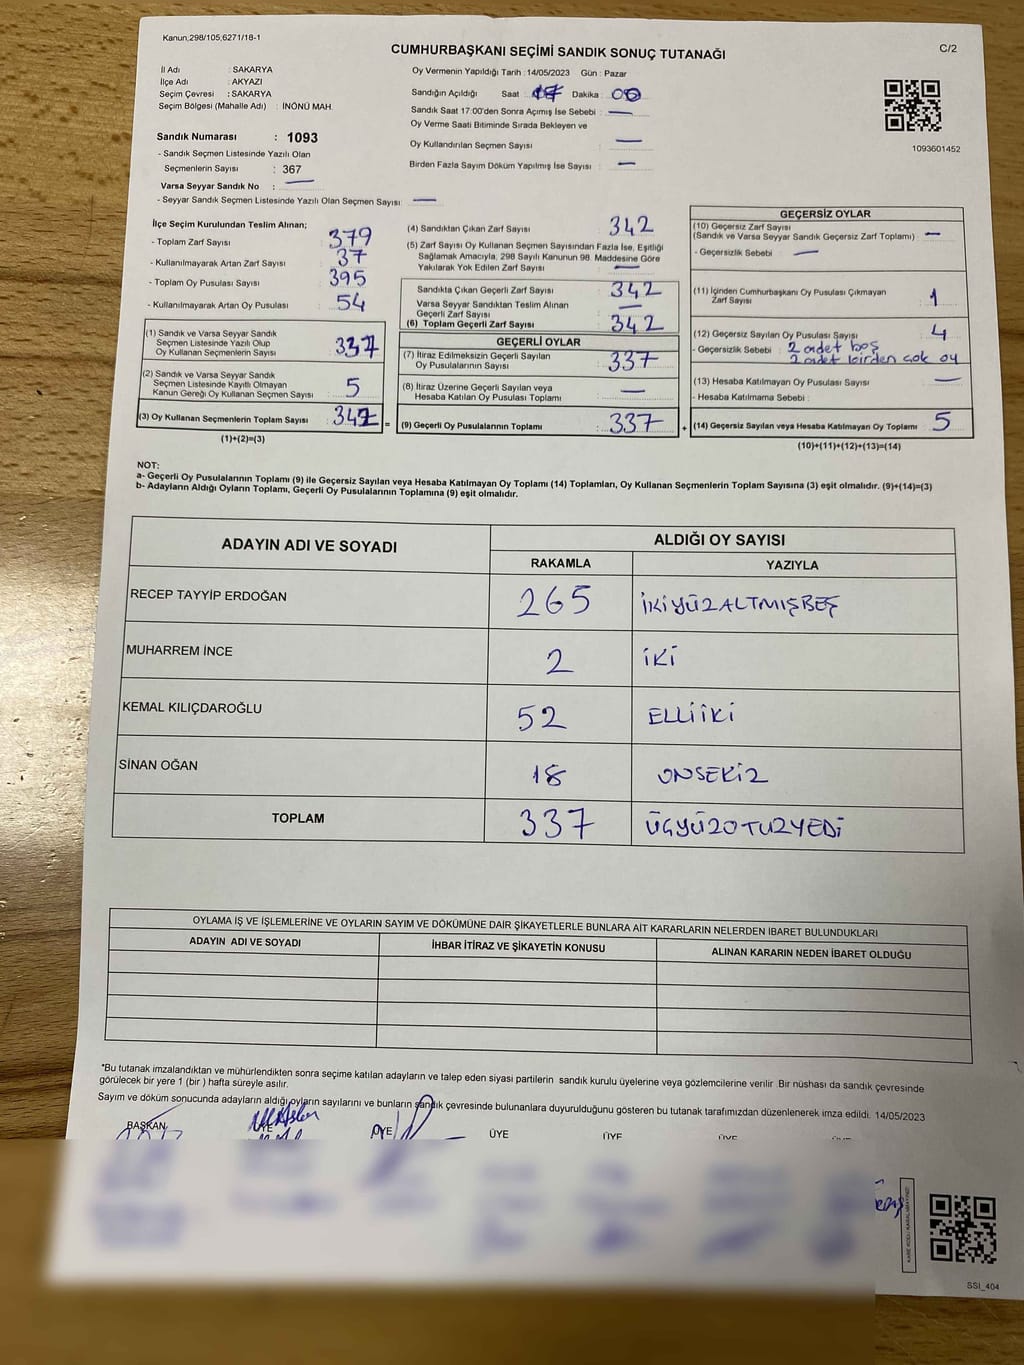 Kanun;298/105,6271/18-1
CUMHURBAŞKANI SEÇİMİ SANDIK SONUÇ TUTANAĞI
C/2
İl Adı : SAKARYA
İlçe Adı : AKYAZI
Seçim Çevresi : SAKARYA
Seçim Bölgesi (Mahalle Adı) : İNÖNÜ MAH.
Oy Vermenin Yapıldığı Tarih : 14/05/2023 Gün : Pazar
Sandığın Açıldığı Saat : 17 Dakika : 00
Sandık Saat 17:00'den Sonra Açımış İse Sebebi : —
Oy Verme Saati Bitiminde Sırada Bekleyen ve
Oy Kullandırılan Seçmen Sayısı : —
Birden Fazla Sayım Döküm Yapılmış İse Sayısı : —
1093601452
Sandık Numarası : 1093
- Sandık Seçmen Listesinde Yazılı Olan
Seçmenlerin Sayısı : 367
Varsa Seyyar Sandık No : —
- Seyyar Sandık Seçmen Listesinde Yazılı Olan Seçmen Sayısı: —
İlçe Seçim Kurulundan Teslim Alınan;
- Toplam Zarf Sayısı : 379
- Kullanılmayarak Artan Zarf Sayısı : 37
- Toplam Oy Pusulası Sayısı : 395
- Kullanılmayarak Artan Oy Pusulası : 54
(1) Sandık ve Varsa Seyyar Sandık
Seçmen Listesinde Yazılı Olup
Oy Kullanan Seçmenlerin Sayısı : 337
(2) Sandık ve Varsa Seyyar Sandık
Seçmen Listesinde Kayıtlı Olmayan
Kanun Gereği Oy Kullanan Seçmen Sayısı : 5
(3) Oy Kullanan Seçmenlerin Toplam Sayısı : 342 =
(1)+(2)=(3)
(4) Sandıktan Çıkan Zarf Sayısı : 342
(5) Zarf Sayısı Oy Kullanan Seçmen Sayısından Fazla İse, Eşitliği
Sağlamak Amacıyla, 298 Sayılı Kanunun 98. Maddesine Göre
Yakılarak Yok Edilen Zarf Sayısı : —
Sandıkta Çıkan Geçerli Zarf Sayısı : 342
Varsa Seyyar Sandıktan Teslim Alınan
Geçerli Zarf Sayısı : —
(6) Toplam Geçerli Zarf Sayısı : 342
GEÇERLİ OYLAR
(7) İtiraz Edilmeksizin Geçerli Sayılan
Oy Pusulalarının Sayısı : 337
(8) İtiraz Üzerine Geçerli Sayılan veya
Hesaba Katılan Oy Pusulası Toplamı : —
(9) Geçerli Oy Pusulalarının Toplamı : 337 +
GEÇERSİZ OYLAR
(10) Geçersiz Zarf Sayısı
(Sandık ve Varsa Seyyar Sandık Geçersiz Zarf Toplamı) : —
- Geçersizlik Sebebi : —
(11) İçinden Cumhurbaşkanı Oy Pusulası Çıkmayan
Zarf Sayısı : 1
(12) Geçersiz Sayılan Oy Pusulası Sayısı : 4
- Geçersizlik Sebebi : 2 adet boş
2 adet birden çok oy
(13) Hesaba Katılmayan Oy Pusulası Sayısı : —
- Hesaba Katılmama Sebebi :
(14) Geçersiz Sayılan veya Hesaba Katılmayan Oy Toplamı : 5
(10)+(11)+(12)+(13)=(14)
NOT:
a- Geçerli Oy Pusulalarının Toplamı (9) ile Geçersiz Sayılan veya Hesaba Katılmayan Oy Toplamı (14) Toplamları, Oy Kullanan Seçmenlerin Toplam Sayısına (3) eşit olmalıdır. (9)+(14)=(3)
b- Adayların Aldığı Oyların Toplamı, Geçerli Oy Pusulalarının Toplamına (9) eşit olmalıdır.
ADAYIN ADI VE SOYADI ALDIĞI OY SAYISI
RAKAMLA YAZIYLA
RECEP TAYYİP ERDOĞAN 265 İKİYÜZALTMIŞBEŞ
MUHARREM İNCE 2 İKİ
KEMAL KILIÇDAROĞLU 52 ELLİİKİ
SİNAN OĞAN 18 ONSEKİZ
TOPLAM 337 ÜÇYÜZOTUZYEDİ
OYLAMA İŞ VE İŞLEMLERİNE VE OYLARIN SAYIM VE DÖKÜMÜNE DAİR ŞİKAYETLERLE BUNLARA AİT KARARLARIN NELERDEN İBARET BULUNDUKLARI
ADAYIN ADI VE SOYADI İHBAR İTİRAZ VE ŞİKAYETİN KONUSU ALINAN KARARIN NEDEN İBARET OLDUĞU
*Bu tutanak imzalandıktan ve mühürlendikten sonra seçime katılan adayların ve talep eden siyasi partilerin sandık kurulu üyelerine veya gözlemcilerine verilir Bir nüshası da sandık çevresinde
görülecek bir yere 1 (bir ) hafta süreyle asılır.
Sayım ve döküm sonucunda adayların aldığı oyların sayılarını ve bunların sandık çevresinde bulunanlara duyurulduğunu gösteren bu tutanak tarafımızdan düzenlenerek imza edildi. 14/05/2023
BAŞKAN ÜYE ÜYE ÜYE ÜYE ÜYE
SSI_404